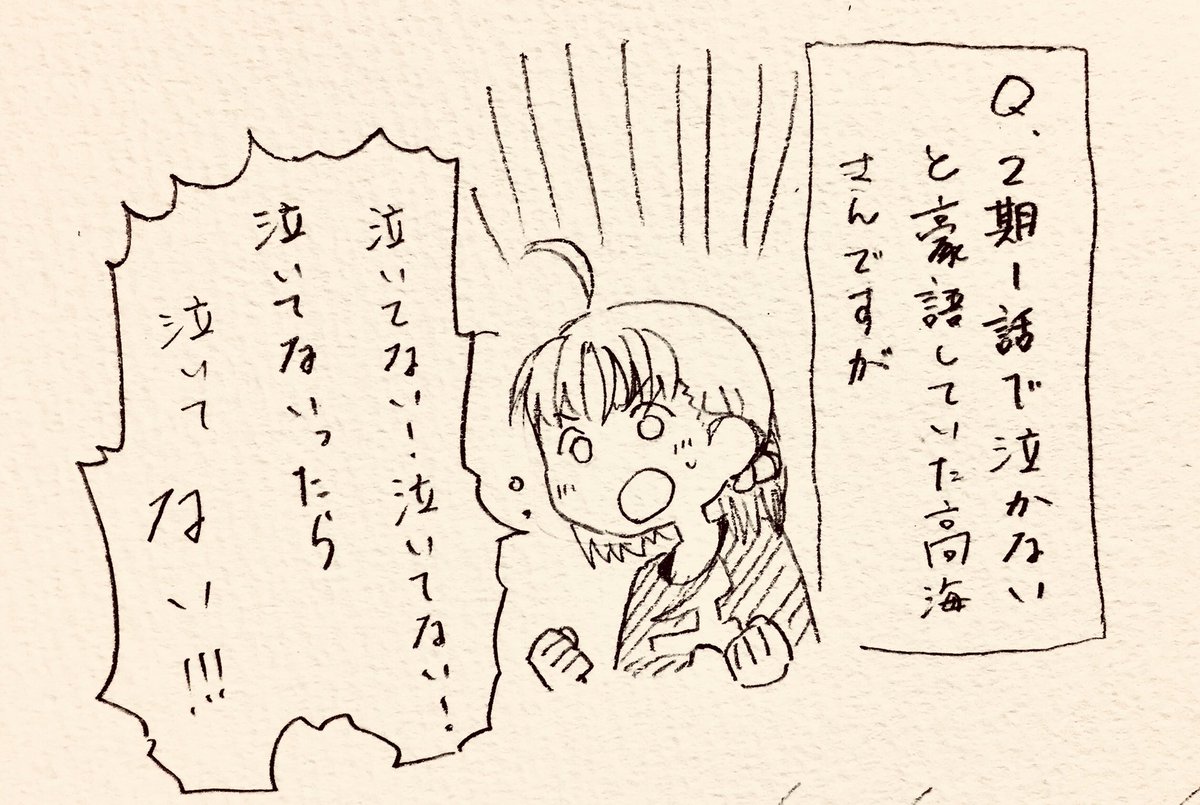 Q、2期1話で泣かない
と豪語していた高海
さんですが
泣いてない!泣いてない!
泣いてないったら
泣いてない!!!